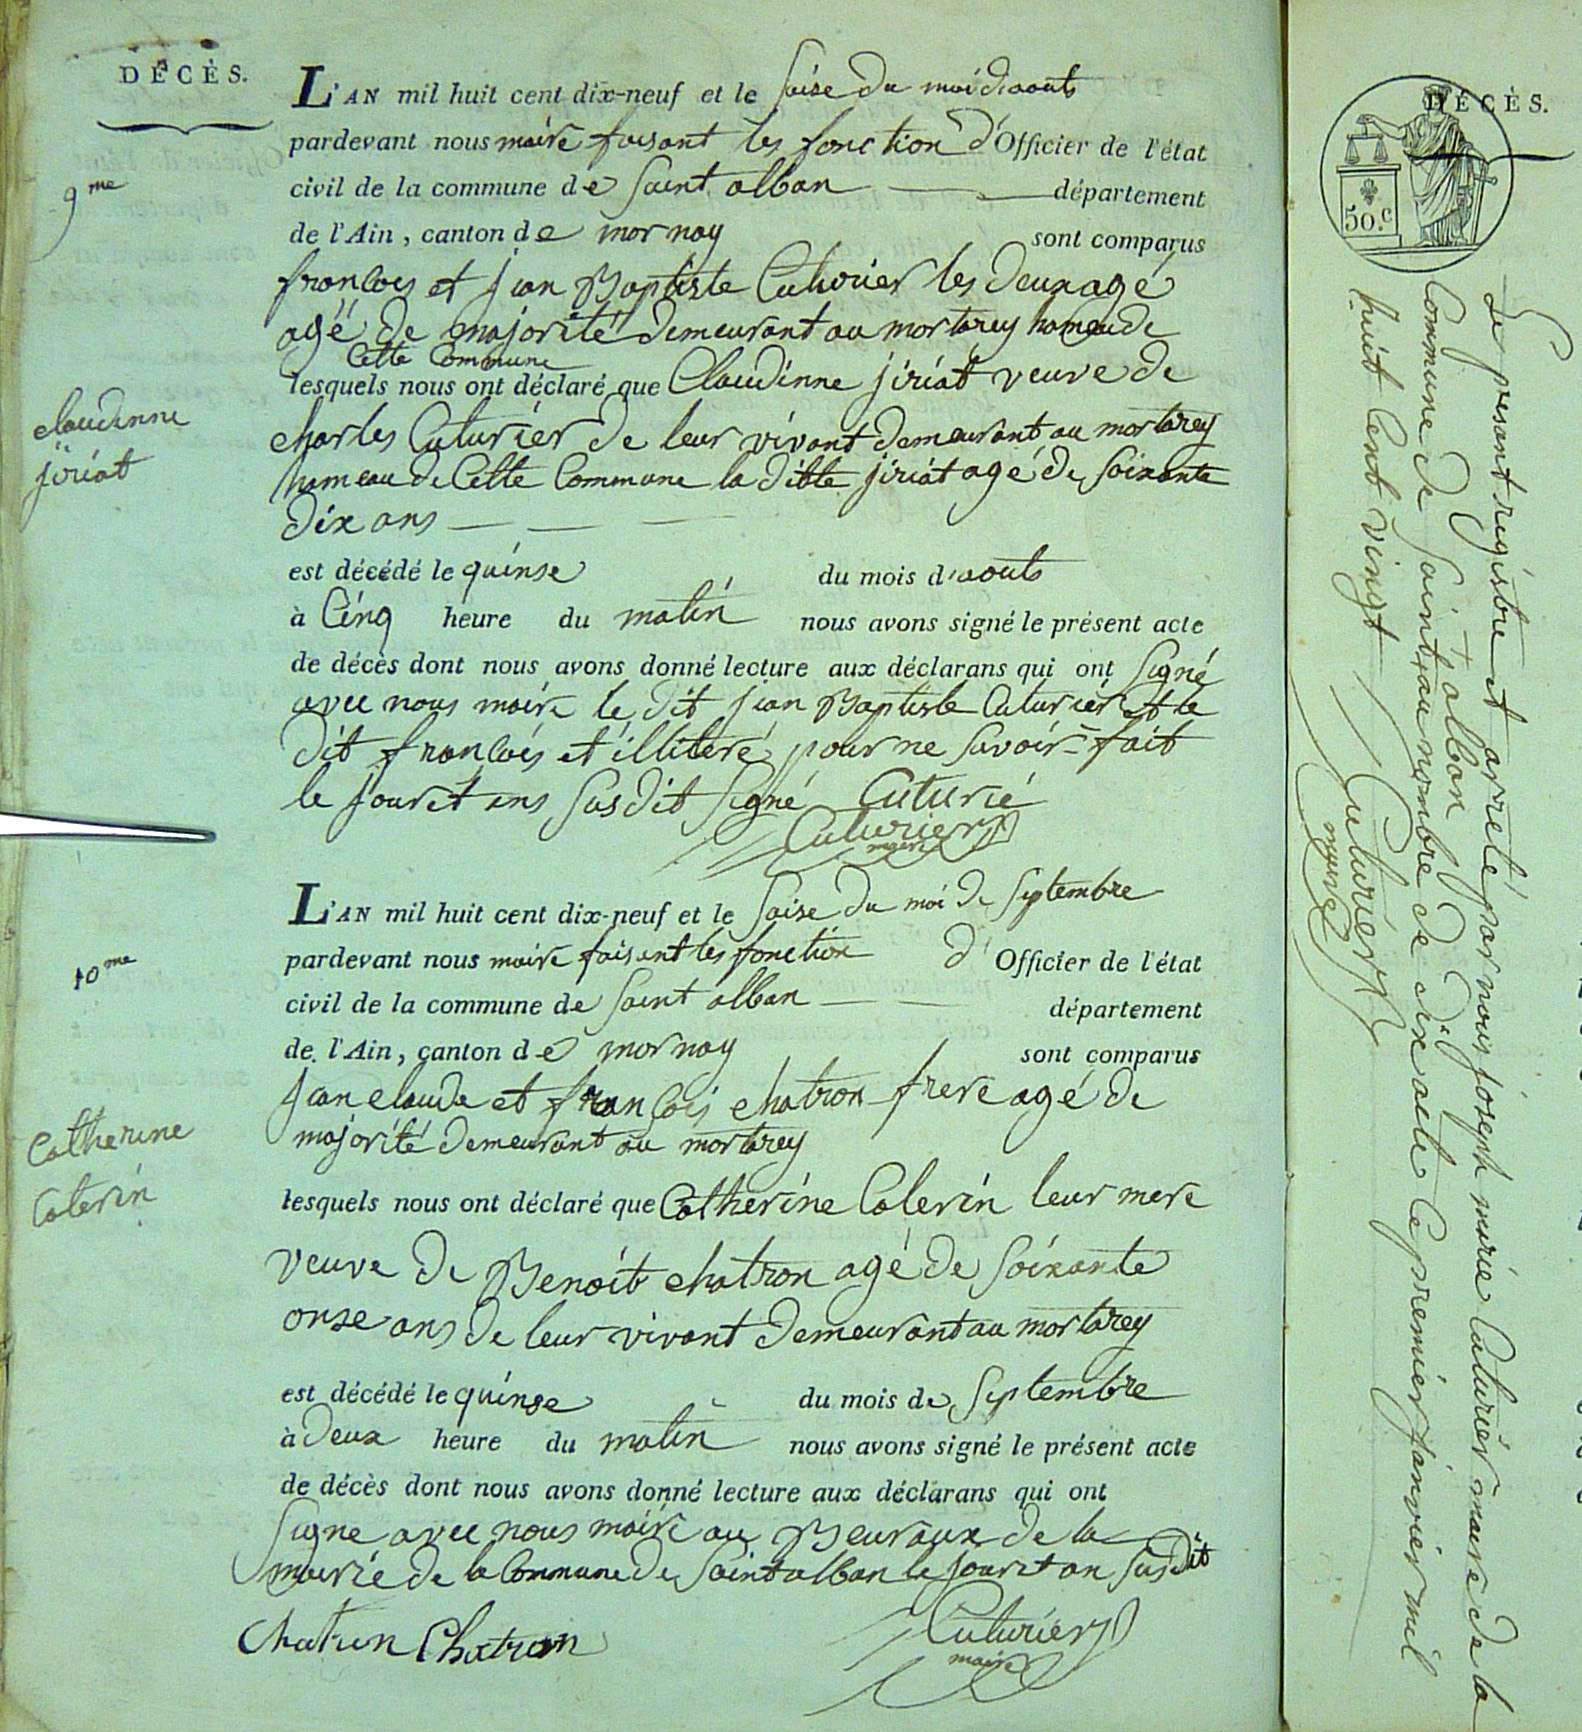 DÉCÈS.
L'AN mil huit cent dix-neuf et le saise du moi d'aouts
pardevant nous maire faisant les fonction d'Officier de l'état
9me
civil de la commune de Saint alban département
de l'Ain, canton de mornay sont comparus
francois et jean Baptiste Cuturier les deux agé
agé de majorité demeurant au mortarey hameau de
Cette Commune
lesquels nous ont déclaré que Claudinne jiriat veuve de
claudinne
jiriat
charles Cuturier de leur vivant demeurant au mortarey
hameau de Cette Commune la ditte jiriat agé de soixante
dix ans
est décédé le quinse du mois d'aouts
à Cinq heure du matin nous avons signé le présent acte
de décès dont nous avons donné lecture aux déclarans qui ont signé
avec nous maire le dit jean Baptiste Cuturier et le
dit francois et illiteré pour ne savoir fait
le jour et ans susdit signé Cuturié
Cuturier
maire
L'AN mil huit cent dix-neuf et le saise du moi de septembre
pardevant nous maire faisant les fonction d'Officier de l'état
10me
civil de la commune de Saint alban département
de l'Ain, canton de mornay sont comparus
jean claude et françois chatron frere agé de
majorité demeurant au mortarey
Catherine
Colerin
lesquels nous ont déclaré que Catherine Colerin leur mere
veuve de Benoit chatron agé de soixante
onse ans de leur vivant demeurant au mortarey
est décédé le quinse du mois de septembre
à deux heure du matin nous avons signé le présent acte
de décès dont nous avons donné lecture aux déclarans qui ont
signe avec nous maire au Beuraux de la
mairie de la Commune de Saint alban le jour et an susdit
Chatron Chatron Cuturier
maire
DÉCÈS.
50.c
Le present registre et arreté par nous joseph marie Cuturier maire de la
Commune de Saint alban
au nombre de dix acte Ce premier janvier mil
huit Cent vingt
Cuturier
maire